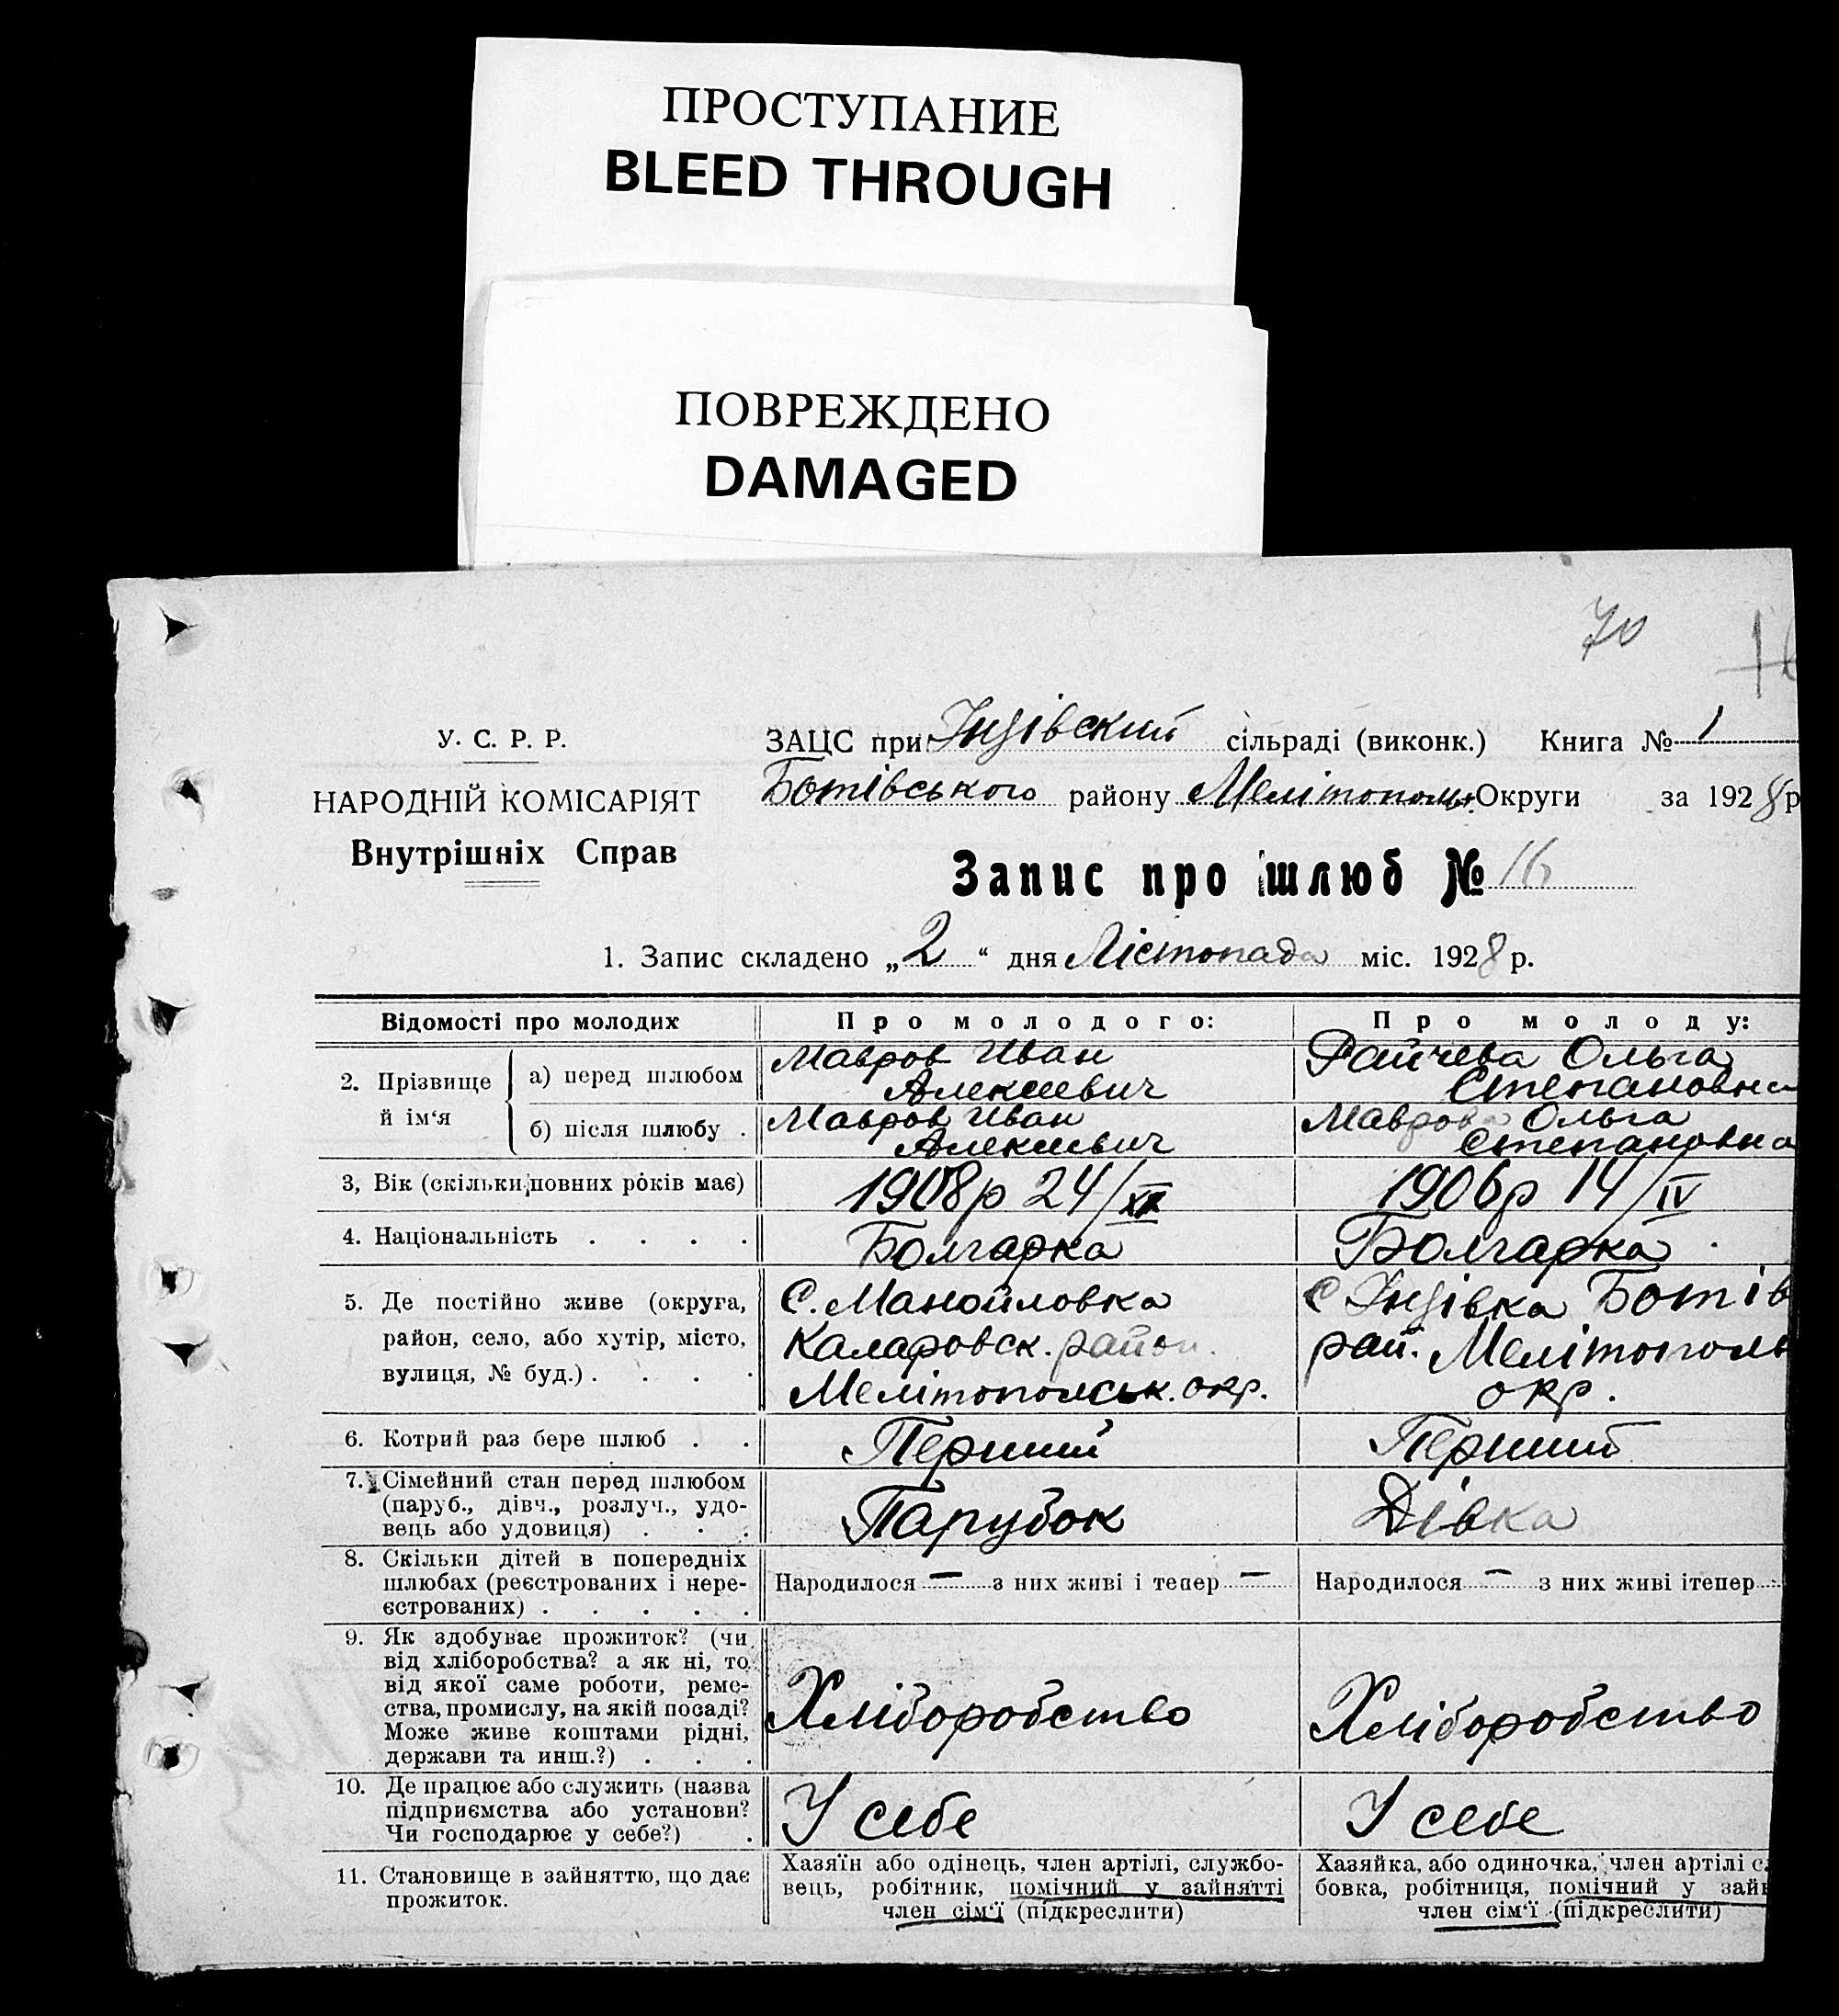 ПРОСТУПАНИЕ
BLEED THROUGH
ПОВРЕЖДЕНО
DAMAGED
70
У. С. Р. Р.
НАРОДНІЙ КОМІСАРІЯТ
Внутрішніх Справ
ЗАЦС при Інзівский сільраді (виконк.) Книга № 1
Ботівського району Мелітополь Округи за 1928 р
Запис про шлюб № 16
1. Запис складено „2“ дня Лістопада міс. 1928 р.
Відомості про молодих Про молодого: Про молоду:
2. Прізвище й ім‘я
а) перед шлюбом
Мавров Иван
Алексеевич
Райчева Ольга
Степановна
б) після шлюбу .
Мавров Иван
Алексеевич
Маврова Ольга
Степановна
3, Вік (скільки повних років має) 1908р 24/ 1906р 14/IV
4. Національність . . . . Болгарка Болгарка
5. Де постійно живе (округа,
район, село, або хутір, місто,
вулиця, № буд.) . . . .
С. Манойловка
Каларовск. район.
Мелітопольськ. окр.
С Інзівка Ботів
рай. Мелітополь
окр.
6. Котрий раз бере шлюб . . Перший Перший
7. Сімейний стан перед шлюбом
(паруб., дівч., розлуч., удо-
вець або удовиця) . . .
Парубок
Дівка
8. Скільки дітей в попередніх
шлюбах (реєстрованих і нере-
єстрованих) . . . . .
Народилося — з них живі і тепер —
Народилося — з них живі ітепер
9. Як здобуває прожиток? (чи
від хліборобства? а як ні, то
від якої саме роботи, реме-
ства, промислу, на якій посаді?
Може живе коштами рідні,
держави та инш.?) . . .
Хліборобство
Хліборобство
10. Де працює або служить (назва
підприємства або установи?
Чи господарює у себе?) .
У себе
У себе
11. Становище в зайняттю, що дає
прожиток.
Хазяїн або одінець, член артілі, службо-
вець, робітник, помічний у зайнятті
член сім‘ї (підкреслити)
Хазяйка, або одиночка, член артілі с
бовка, робітниця, помічний у зайн
член сім‘ї (підкреслити)